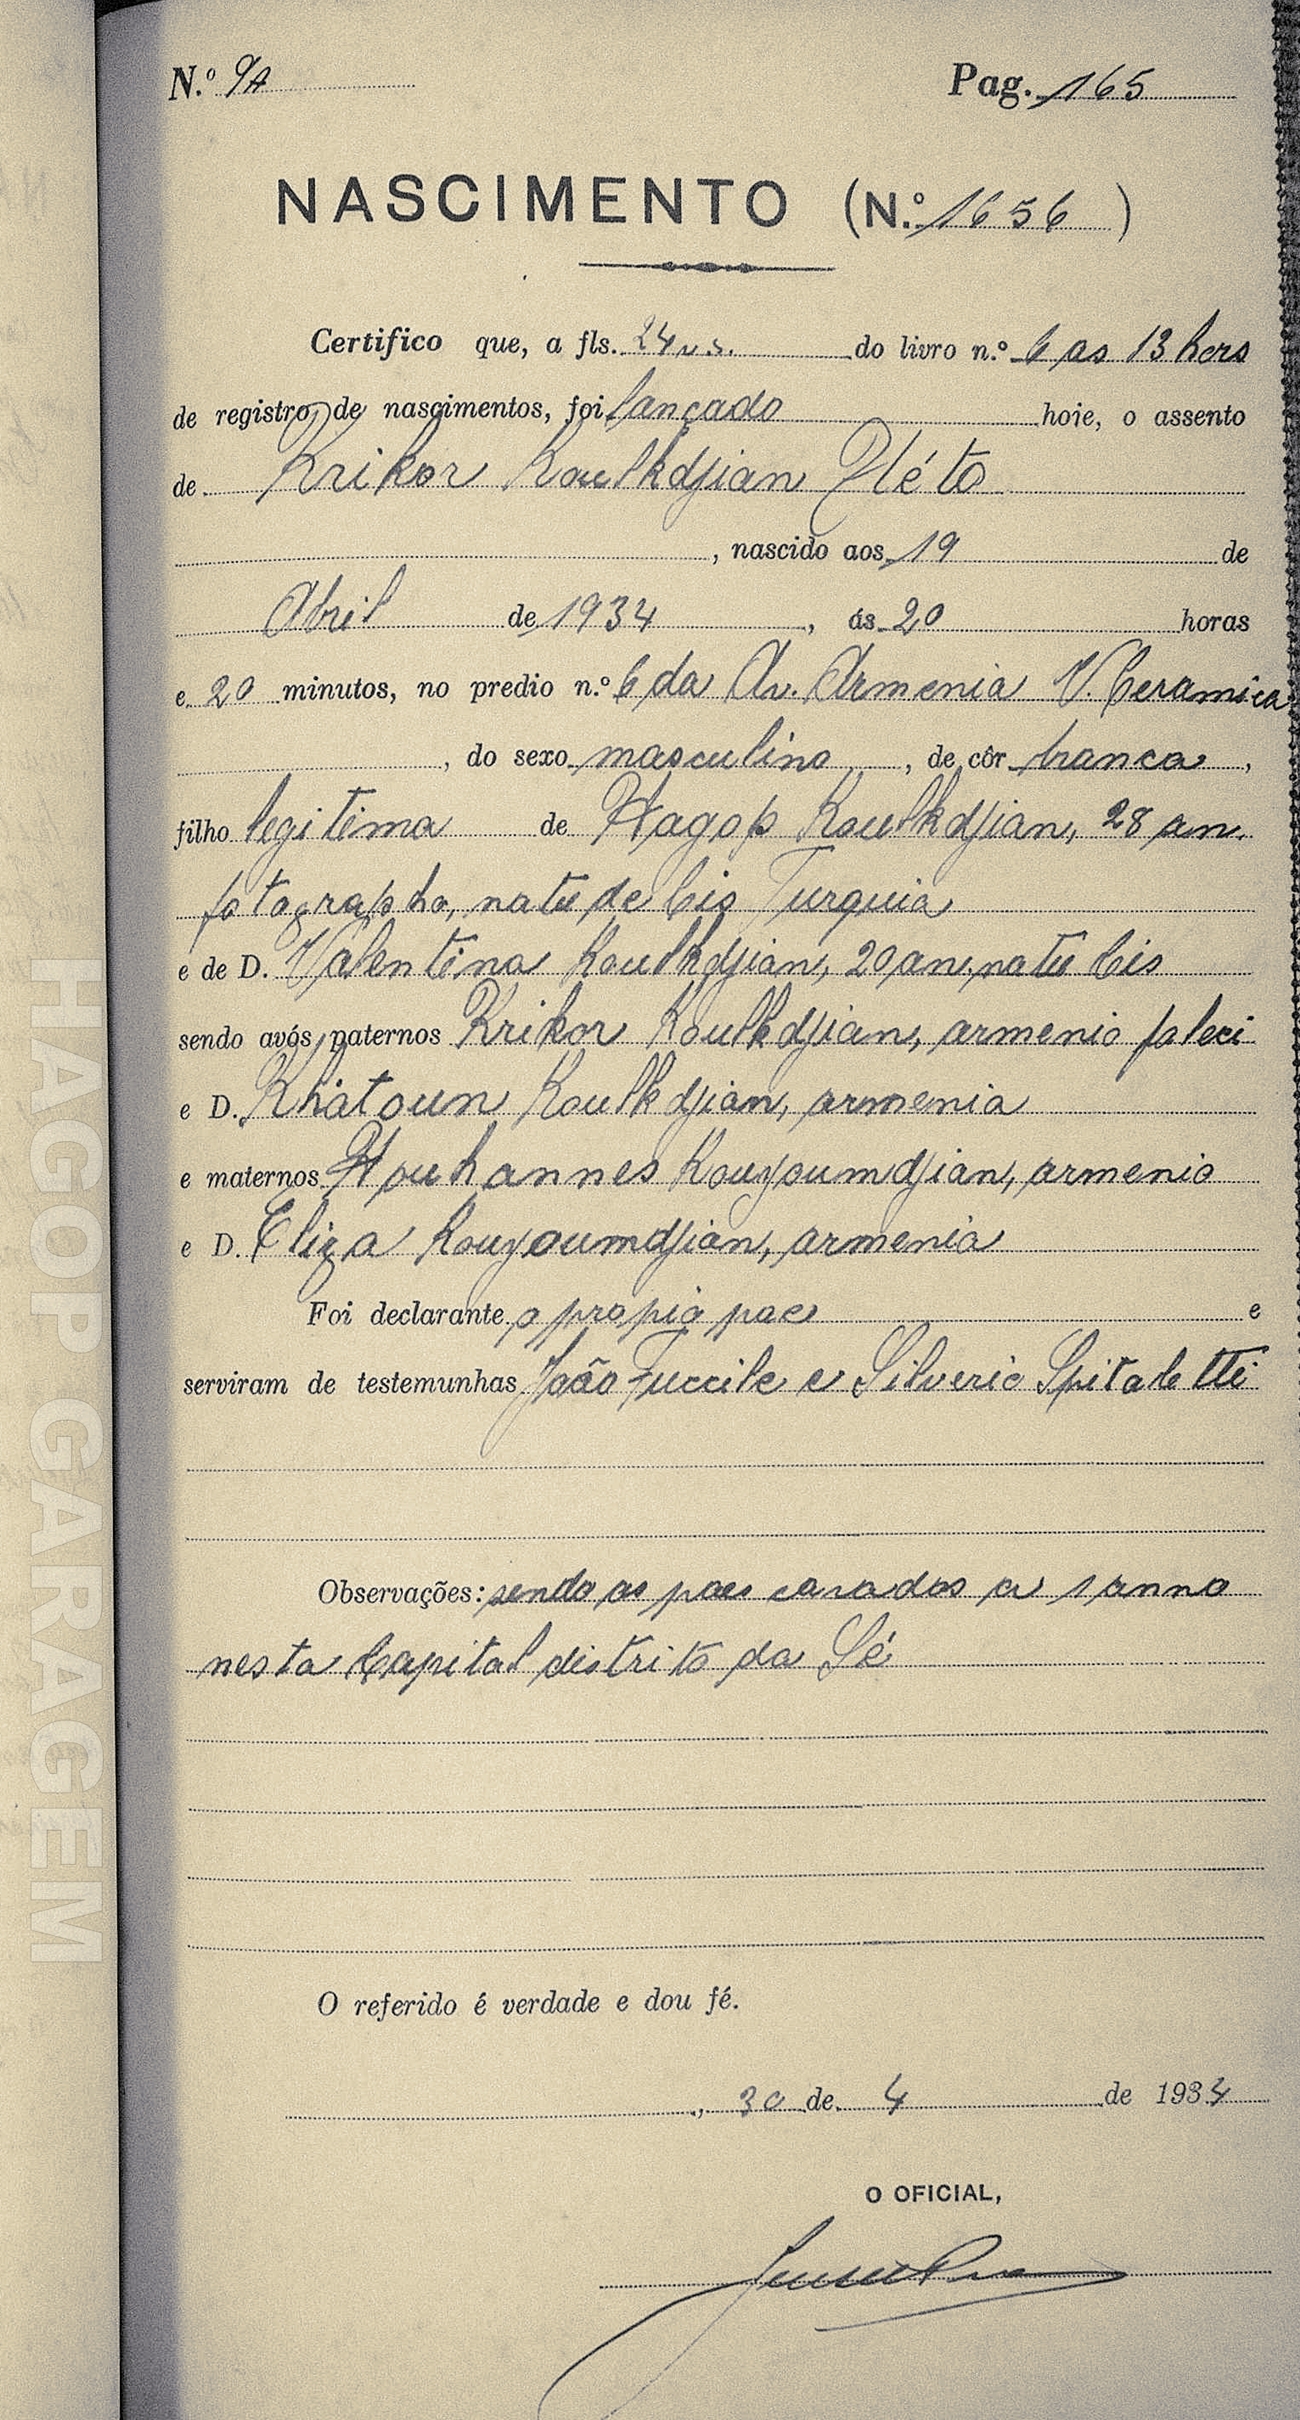 N.º 9A Pag. 165
NASCIMENTO (N.º 1656)
Certifico que, a fls. 24 v.s. do livro n.º 6 as 13 hors
de registro de nascimentos, foi lançado hoje, o assento
de Krikor Koulkdjian Néto
, nascido aos 19 de
Abril de 1934, ás 20 horas
e 20 minutos, no predio n.º 6 da Av. Armenia V. Ceramica
, do sexo masculino, de côr branca,
filho legitimo de Hagop Koulkdjian, 28 an.
fotographo, natu de Cis Turquia
e de D. Valentina Koulkdjian, 20 an. natu Cis
sendo avós paternos Krikor Koulkdjian, armenio faleci
e D. Khatoun Koulkdjian, armenia
e maternos Houhannes Kouyoumdjian, armenio
e D. Eliza Kouyoumdjian, armenia
Foi declarante o propio pae e
serviram de testemunhas João Fuccile e Silverio Spitaletti
Observações: sendo os paes casados a 1 anno
nesta Capital distrito da Sé
O referido é verdade e dou fé.
, 30 de 4 de 1934
O OFICIAL,
HAGOP GARAGEM